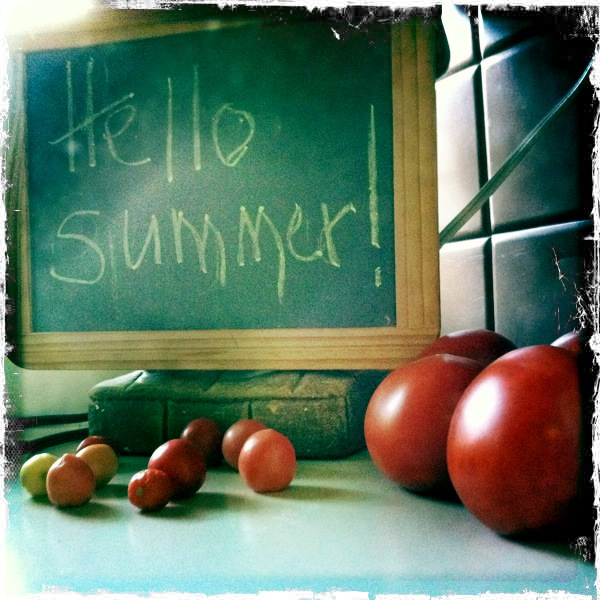 Hello
summer!